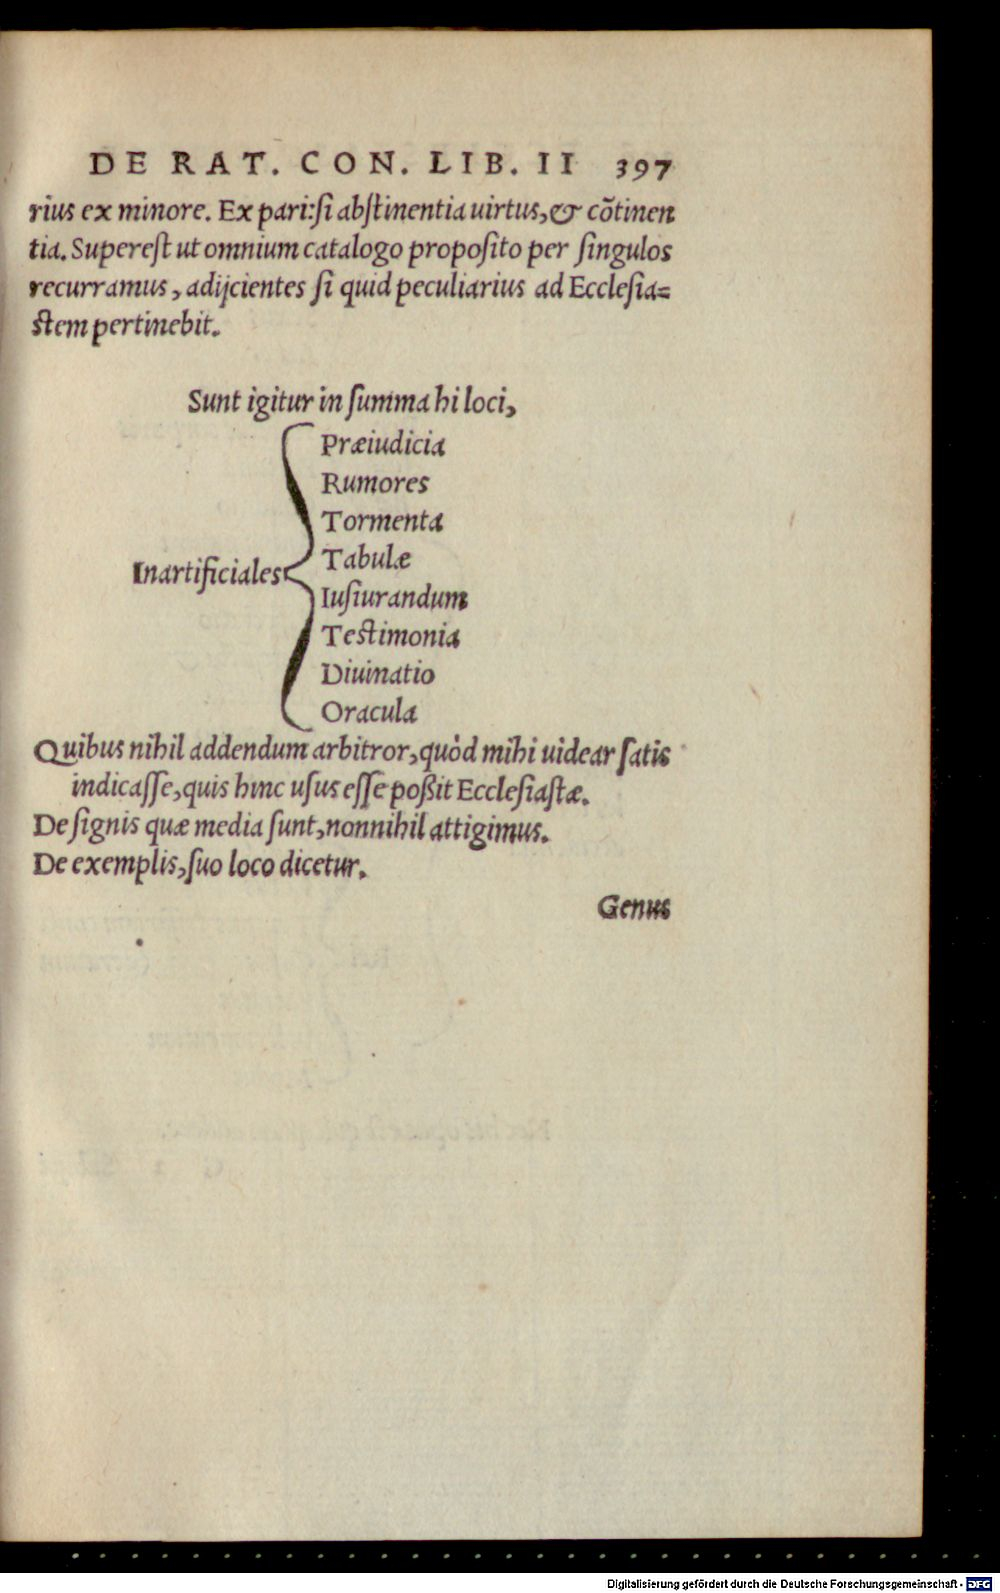 DE RAT. CON. LIB. II 397
rius ex minore. Ex pari: ſi abſtinentia uirtus, & cõtinen
tia. Supereſt ut omnium catalogo propoſito per ſingulos
recurramus, adijcientes ſi quid peculiarius ad Eccleſia=
ſtem pertinebit.
Sunt igitur in ſumma hi loci,
Præiudicia
Rumores
Tormenta
Tabulæ
Inartificiales
Iuſiurandum
Teſtimonia
Diuinatio
Oracula
Quibus nihil addendum arbitror, quòd mihi uidear ſatis
indicaſſe, quis hinc uſus eſſe poßit Eccleſiaſtæ.
De ſignis quæ media ſunt, nonnihil attigimus.
De exemplis, ſuo loco dicetur.
Genus
Digitalisierung gefördert durch die Deutsche Forschungsgemeinschaft - DFG